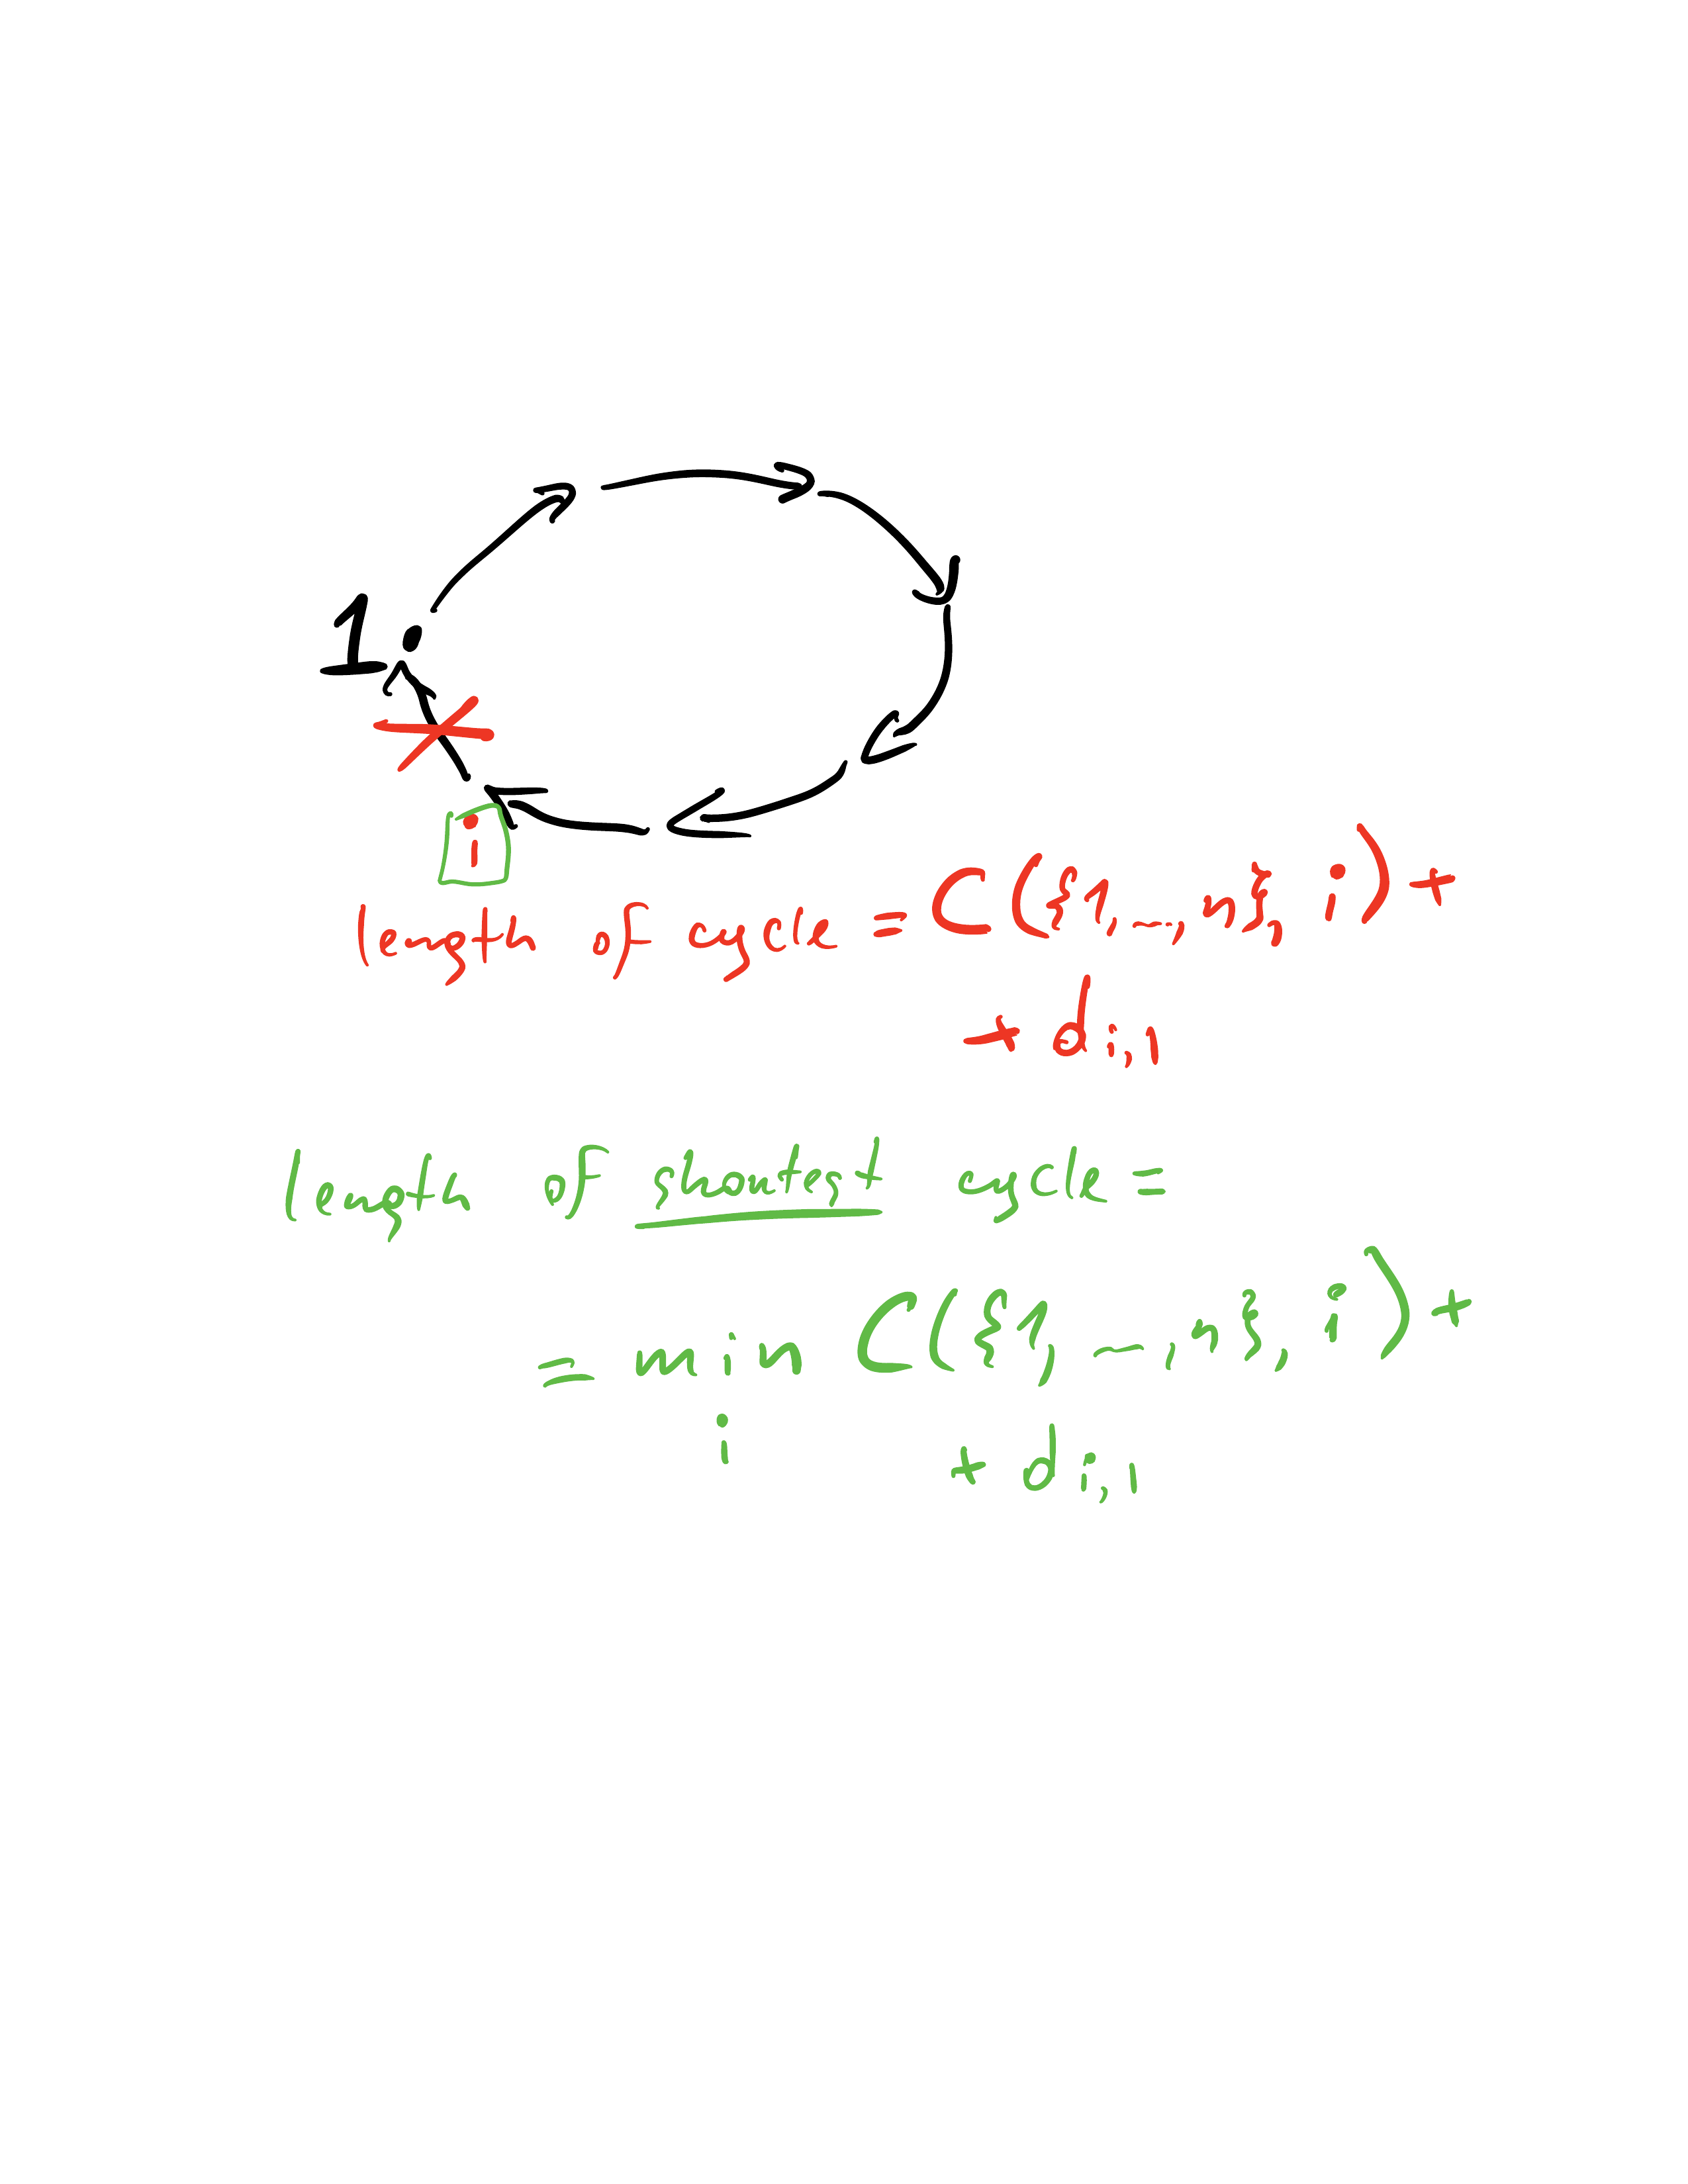 1
i
length of cycle = C({1, ..., n}, i) +
+ d_{i,1}
length of shortest cycle =
= min C({1, ..., n}, i) +
i + d_{i,1}